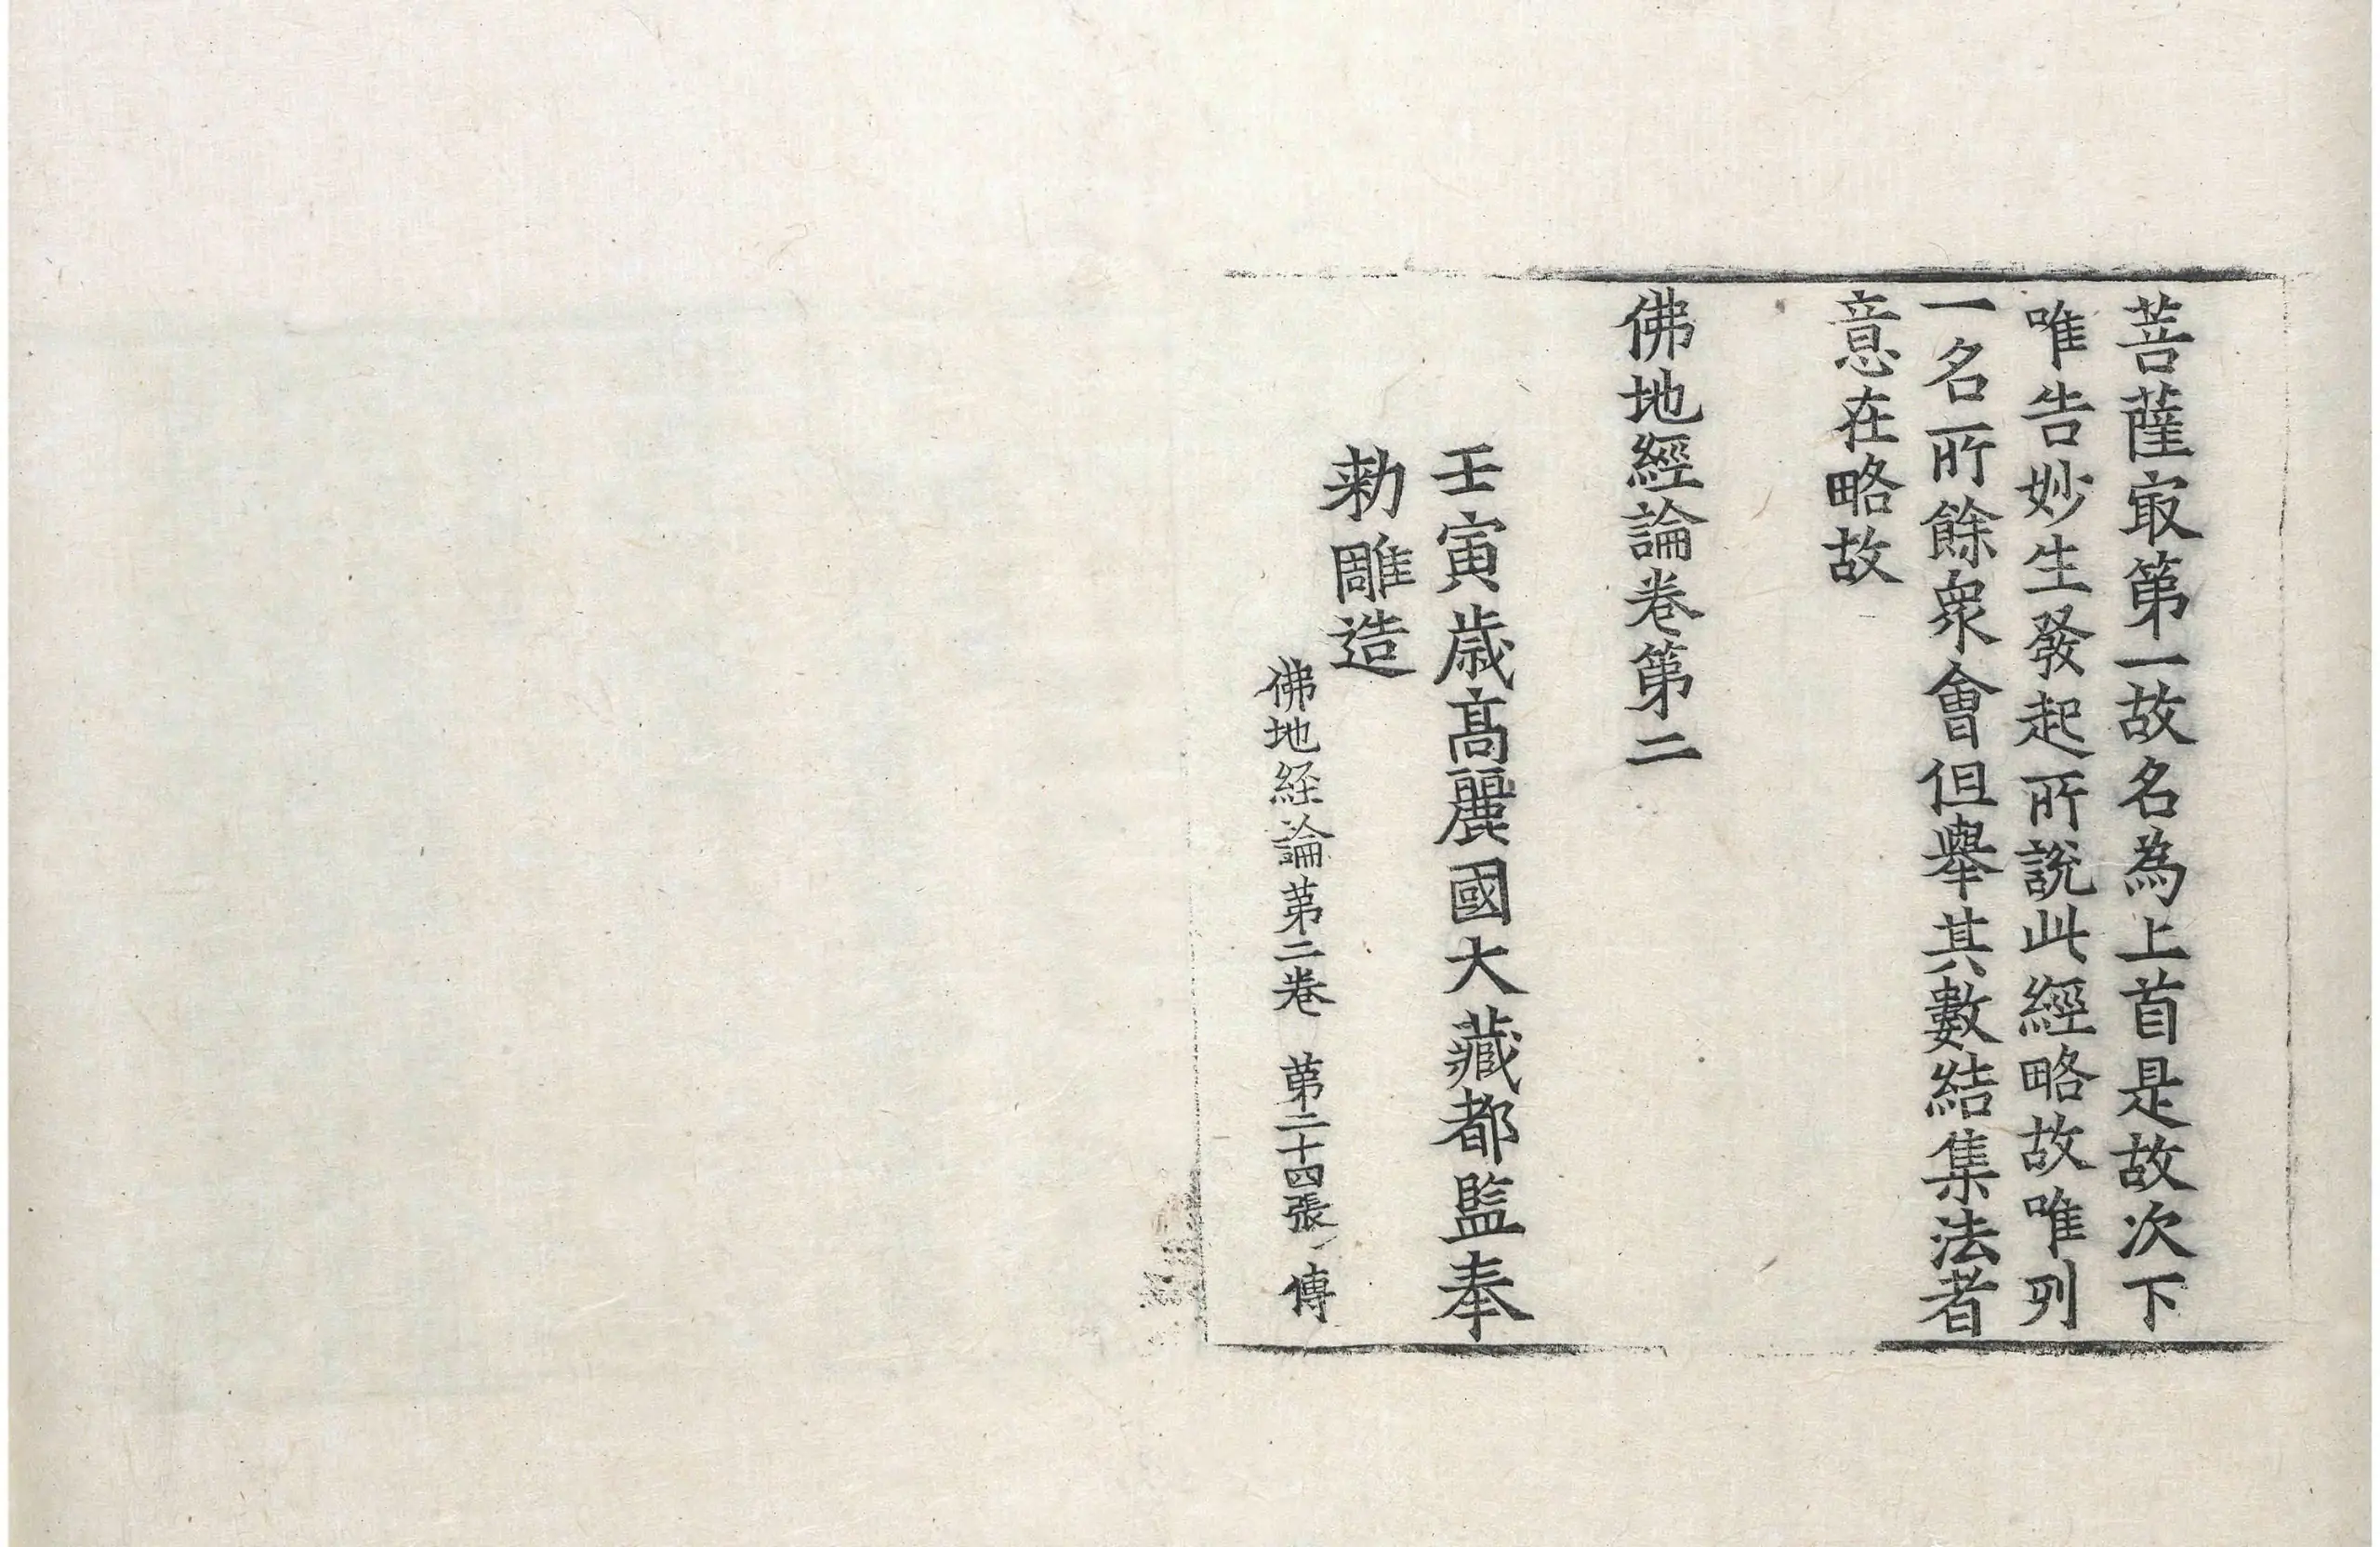 菩薩㝡第一故名為上首是故次下
唯告妙生發起所說此經略故唯列
一名所餘衆會但舉其數結集法者
意在略故
佛地經論卷第二
壬寅歳髙麗國大藏都監奉
勑雕造
佛地経論苐二卷 苐二十四張 傳